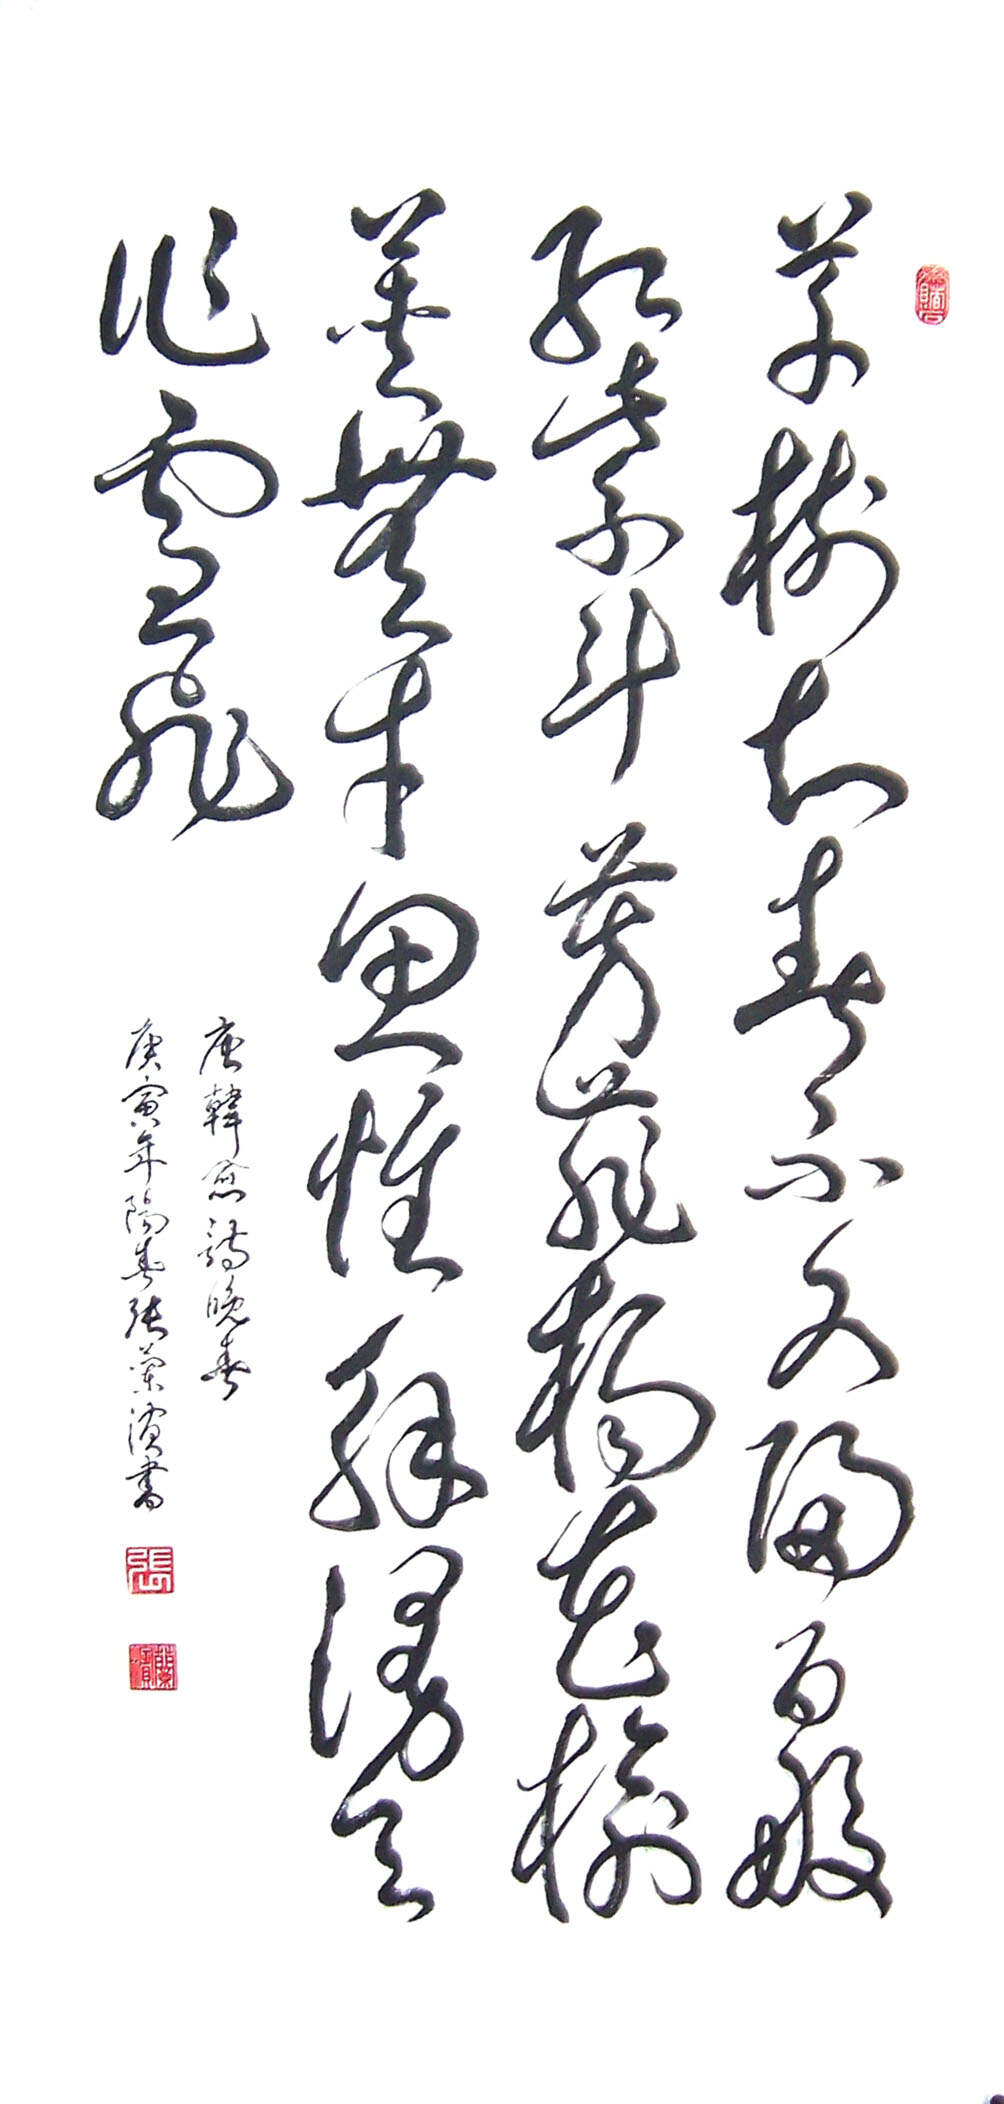 草樹知春不久歸百般
紅紫斗芳菲楊花榆
莢無才思惟解漫天
作雪飛
唐韓愈詩晚春
庚寅年陽春張蘭濱書
張